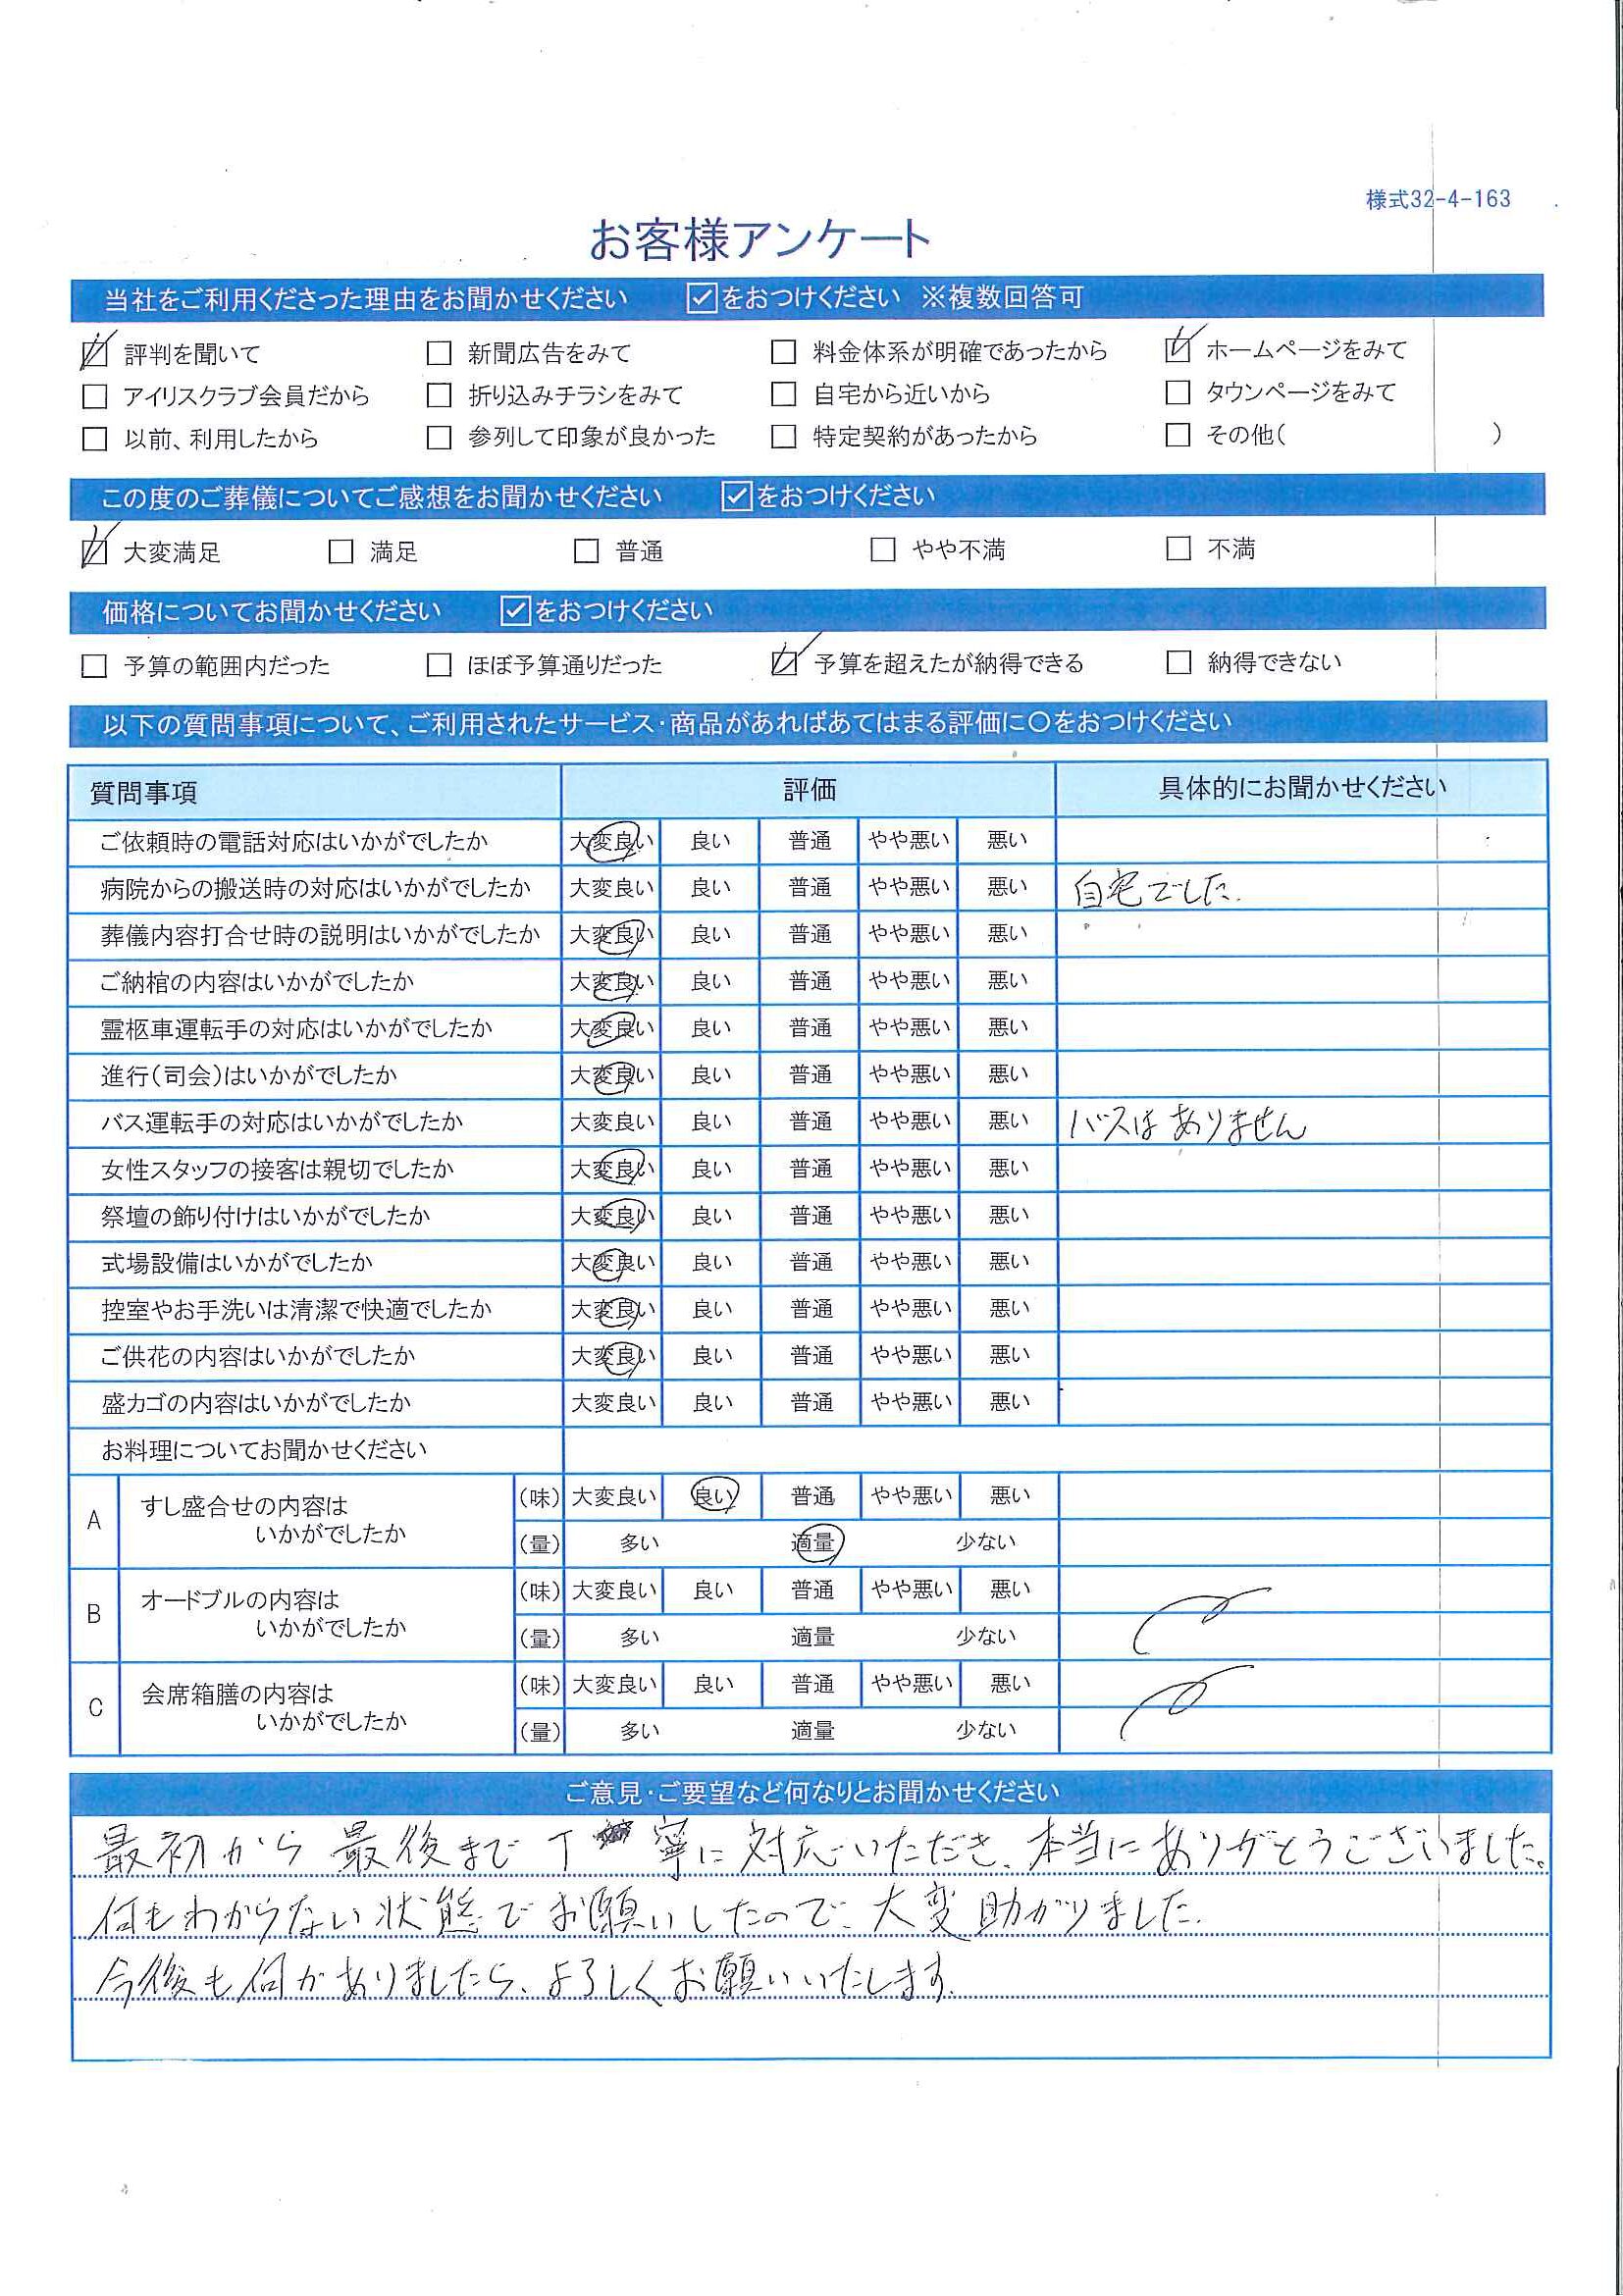 様式32-4-163
お客様アンケート
当社をご利用くださった理由をお聞かせください ☑をおつけください ※複数回答可
☑ 評判を聞いて □ 新聞広告をみて □ 料金体系が明確であったから ☑ ホームページをみて
□ アイリスクラブ会員だから □ 折り込みチラシをみて □ 自宅から近いから □ タウンページをみて
□ 以前、利用したから □ 参列して印象が良かった □ 特定契約があったから □ その他( )
この度のご葬儀についてご感想をお聞かせください ☑をおつけください
☑ 大変満足 □ 満足 □ 普通 □ やや不満 □ 不満
価格についてお聞かせください ☑をおつけください
□ 予算の範囲内だった □ ほぼ予算通りだった ☑ 予算を超えたが納得できる □ 納得できない
以下の質問事項について、ご利用されたサービス・商品があればあてはまる評価に○をおつけください
質問事項 評価 具体的にお聞かせください
ご依頼時の電話対応はいかがでしたか 大変良い 良い 普通 やや悪い 悪い
病院からの搬送時の対応はいかがでしたか 大変良い 良い 普通 やや悪い 悪い 自宅でした.
葬儀内容打合せ時の説明はいかがでしたか 大変良い 良い 普通 やや悪い 悪い
ご納棺の内容はいかがでしたか 大変良い 良い 普通 やや悪い 悪い
霊柩車運転手の対応はいかがでしたか 大変良い 良い 普通 やや悪い 悪い
進行(司会)はいかがでしたか 大変良い 良い 普通 やや悪い 悪い
バス運転手の対応はいかがでしたか 大変良い 良い 普通 やや悪い 悪い バスはありません
女性スタッフの接客は親切でしたか 大変良い 良い 普通 やや悪い 悪い
祭壇の飾り付けはいかがでしたか 大変良い 良い 普通 やや悪い 悪い
式場設備はいかがでしたか 大変良い 良い 普通 やや悪い 悪い
控室やお手洗いは清潔で快適でしたか 大変良い 良い 普通 やや悪い 悪い
ご供花の内容はいかがでしたか 大変良い 良い 普通 やや悪い 悪い
盛カゴの内容はいかがでしたか 大変良い 良い 普通 やや悪い 悪い
お料理についてお聞かせください
A すし盛合せの内容は いかがでしたか (味) 大変良い 良い 普通 やや悪い 悪い
(量) 多い 適量 少ない
B オードブルの内容は いかがでしたか (味) 大変良い 良い 普通 やや悪い 悪い
(量) 多い 適量 少ない
C 会席箱膳の内容は いかがでしたか (味) 大変良い 良い 普通 やや悪い 悪い
(量) 多い 適量 少ない
ご意見・ご要望など何なりとお聞かせください
最初から最後まで丁寧に対応いただき、本当にありがとうございました。
何もわからない状態でお願いしたので、大変助かりました.
今後も何かありましたら、よろしくお願いいたします.